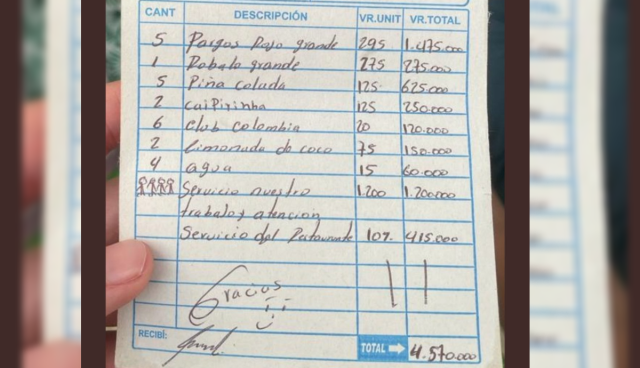 CANT DESCRIPCIÓN VR.UNIT VR.TOTAL
5 Pargos Rojo grande 295 1.475.000
1 Robalo grande 275 275.000
5 Piña colada 125. 625.000
2 caiPirinha 125 250.000
6 club colombia 20 120.000
2 limonada de coco 75 150.000
4 agua 15 60.000
Servicio nuestro 1.200 1.200.000
trabalo y atencion
Servicio del 10% 415.000
Gracias
RECIBÍ:
TOTAL 4.570.000